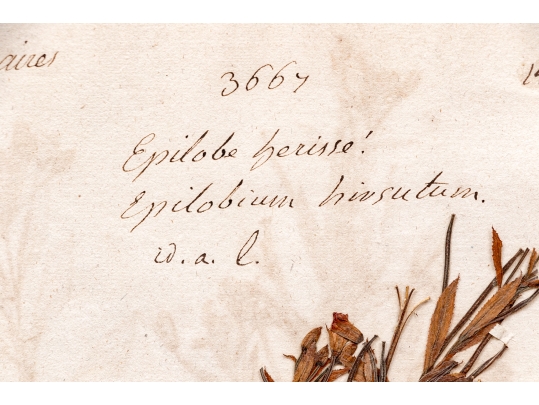 aires
3667
Epilobe herissé!
Epilobium hirsutum.
id. a. l.